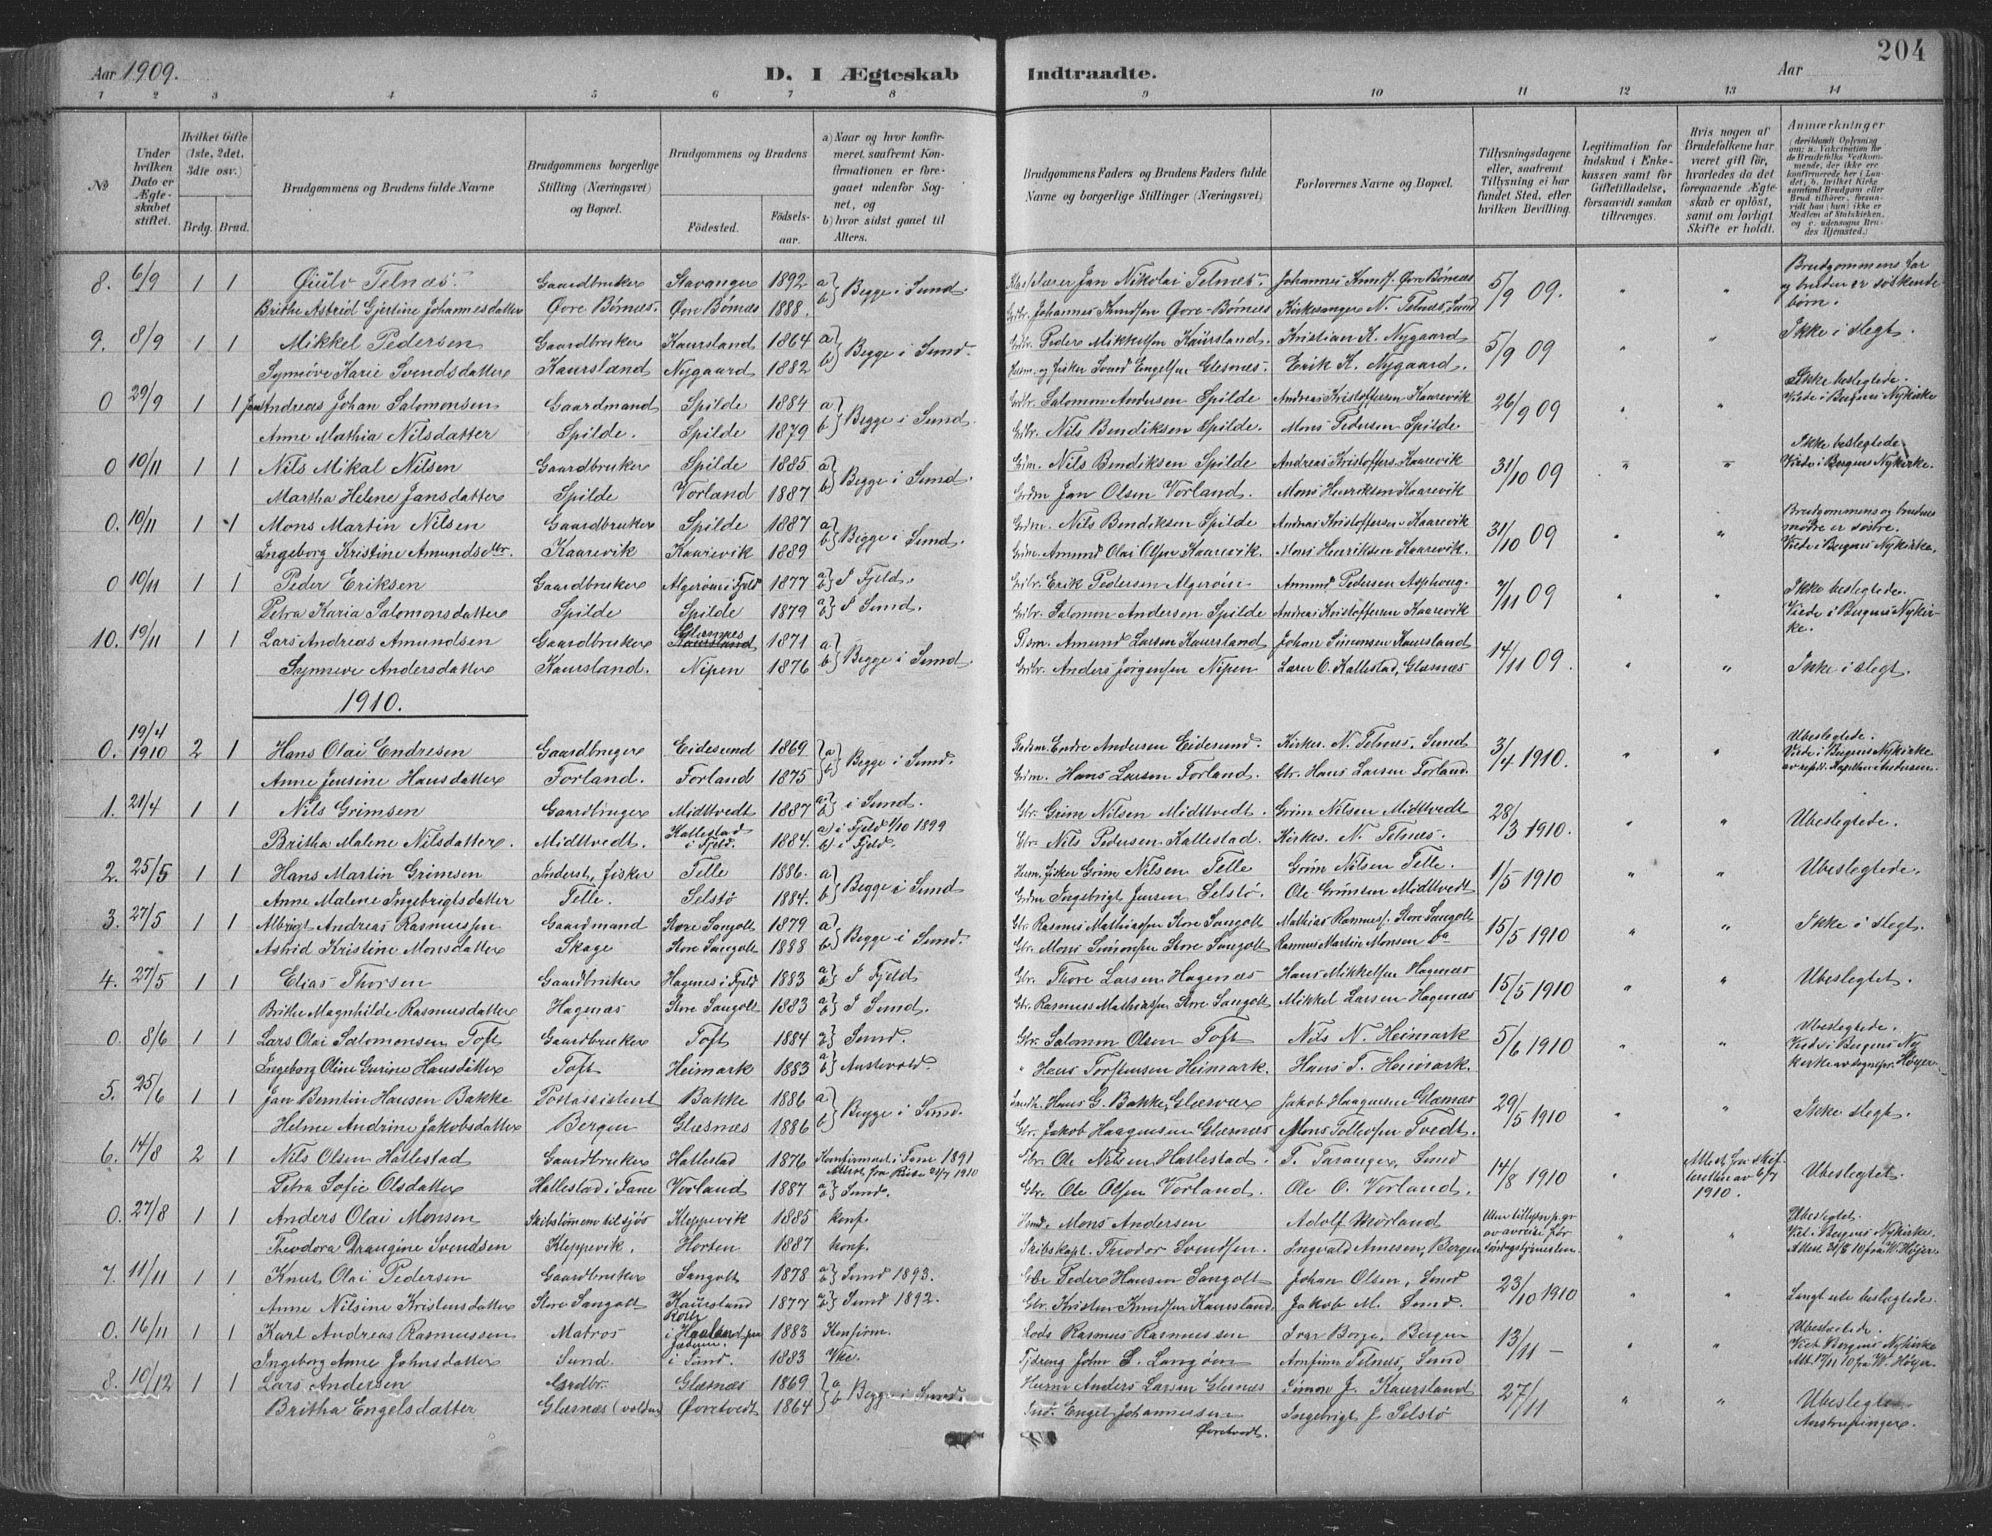 204
Aar 1909.
D. I Ægteskab Indtraadte.
Aar
1 2 3 4 5 6 7 8 9 10 11 12 13 14
No
Under hvilken Dato er Ægteskabet stiftet.
Hvilket Gifte (1ste, 2det, 3dte osv.)
Brdg. Brud.
Brudgommens og Brudens fulde Navne
Brudgommens borgerlige Stilling (Næringsvei) og Bopæl.
Brudgommens og Brudens
Fødested.
Fødselsaar.
a) Naar og hvor konfirmeret, saafremt Konfirmationen er foregaaet udenfor Sognet, og
b) hvor sidst gaaet til Alters.
Brudgommens Faders og Brudens Faders fulde Navne og borgerlige Stillinger (Næringsvei)
Forlovernes Navne og Bopæl.
Tillysningsdagene eller, saafremt Tillysning ei har fundet Sted, efter hvilken Bevilling.
Legitimation for Indskud i Enkekassen samt for Giftetilladelse, forsaavidt saadan tiltrænges.
Hvis nogen af Brudefolkene har været gift før, hvorledes da det foregaaende Ægteskab er opløst, samt om lovligt Skifte er holdt.
Anmærkninger
8. 6/9 1 1 Øiulv Telnæs. Gaardbruker Stavanger 1892 a) b) Begge i Sund. Jan Nikolai Telnæs. Johannes Knuts. Øvre Børnæs 5/9 09. " " Brudgommens far og bruden er søskendebørn.
Brithe Astrid Gjertine Johannesdatter Øvre Børnæs. Øvre Børnæs 1888. Gbr. Johannes Knudsen Øvre-Børnæs Kirkesanger N. Telnæs, Sund
9. 8/9 1 1 Mikkel Pedersen Gaardbruker Kaursland 1864 a) b) Begge i Sund. Gbr. Peder Mikkelsen Kaursland. Kristian K. Nygaard 5/9 09 " " Ikke i slegt.
Synnøve Karie Svendsdatter Kaursland Nygaard 1882 Husm. og fisker Svend Engelsen Glesnæs. Erik K. Nygaard.
0 29/9 1 1 Andreas Johan Salomonsen Gaardmand Spilde 1884 a b) Begge i Sund. Gbr. Salomon Andersen Spilde Andreas Kristoffersen Kaarevik 26/9 09 " " Ikke beslegtede. Viede i Bergens Nykirke
Anne Mathia Nilsdatter Spilde. Spilde 1879 Gbr. Nils Bendiksen Spilde. Mons Pedersen Spilde
0 10/11 1 1 Nils Mikal Nilsen Gaardbruker Spilde 1885 a) b) Begge i Sund. Grdm. Nils Bendiksen Spilde Andreas Kristoffers. Kaarevik 31/10 09 " " Ikke beslegtede. Viede i Bergens Nykirke.
Martha Helene Jansdatter Spilde Vorland 1887 Grdm Jan Olsen Vorland. Mons Henriksen Kaarevik
0. 10/11 1 1 Mons Martin Nilsen Gaardbruker Spilde 1887 a) b) Begge i Sund. Grdm. Nils Bendiksen Spilde Andreas Kristoffersen Kaarevik 31/10 09 " " Brudgommens og brudens mødre er søstre. Viede i Bergens Nykirke.
Ingeborg Kristine Amundsdtr. Kaarevik Kaarevik 1889 Grdm. Amund Olai Olsen Kaarevik. Mons Henriksen Kaarevik.
0 10/11 1 1 Peder Eriksen Gaardbruker Algerøen i Fjeld 1877 a) b) I Fjeld. Gbr. Erik Pedersen Algerøen Amund Pedersen 7/11 09 " " Ikke beslegtede. Viede i Bergens Nykirke.
Petra Karia Salomonsdatter Spilde Spilde 1879 a) b) I Sund. Gbr. Salomon Andersen Spilde Andreas Kristoffersen Kaarevik
10. 19/11 1 1 Lars Andreas Amundsen Gaardbruker Glesnæs Kaursland 1871 a) b) Begge i Sund Amund Larsen Kaursland Johan Simonsen Kaursland 14/11 09. " " Ikke i slegt.
Synneve Andersdatter Kaursland. Nipen 1876 Gbr. Anders Jørgensen Nipen Lærer O. Kallestad, Glesnæs
1910.
0. 19/4 1910 2 1 Hans Olai Endresen Gaardbruger Eidesund 1869 a) b) Begge i Sund. Endre Andersen Eidesund. Kirkes. N. Telnæs. Sund 3/4 1910. " " Ubeslegtede. Viede i Bergens Nykirke av resid. Kapellan Andersen.
Anne Jensine Hansdatter Forland. Forland 1875 Grdm. Hans Larsen Forland. Gbr. Hans Larsen Forland.
1. 21/4 1 1 Nils Grimsen Gaardbruger Midttvedt 1887 a) b) i Sund. Gbr. Grim Nilsen Midttvedt. Grim Nilsen Midttvedt 28/3 1910. " " Ubeslegtede.
Britha Malene Nilsdatter. Midttvedt. Kallestad i Fjeld. 1884. a) i Fjeld 1/10 1899 b) i Fjeld. Gbr. Nils Pedersen Kallestad. Kirkes. N. Telnæs.
2. 25/5 1 1 Hans Martin Grimsen Inderst, fisker Telle 1886. a) b) Begge i Sund Husm. fisker Grim Nilsen Telle Grim Nilsen Telle. 1/5 1910 " " Ubeslegtede.
Anne Malene Ingebrigtsdatter Telle. Selstø 1884. Grdm Ingebrigt Jensen Selstø. Ole Grimsen Midttvedt
3. 27/5 1 1 Albrigt Andreas Rasmussen Gaardmand Store Sangolt 1879 a) b) Begge i Sund. Gbr. Rasmus Mathiassen Store Sangolt Mathias Rasmuss. Store Sangolt 15/5 1910 " " Ikke i slegt.
Astrid Kristine Monsdatter Skage Store Sangolt 1888 Gbr. Mons Simonsen Store Sangolt. Rasmus Martin Monsen do
4. 27/5 1 1 Elias Thorsen Gaardbruker Hagenes i Fjeld 1883 a) b) I Fjeld Gbr. Thore Larsen Hagenæs Hans Mikkelsen Hagenæs 15/5 1910 " " Ubeslegtet.
Brithe Magnhilde Rasmusdatter Hagenæs Store Sangolt 1883 a) b) I Sund. Gbr. Rasmus Mathiassen Store Sangolt Mikkel Larsen Hagenæs
0. 8/6 1 1 Lars Olai Salomonsen Toft Gaardbruker Toft 1884 a) b) Sund. Gbr. Salomon Olsen Toft Nils N. Heimark 5/6 1910 " " Ubeslegtede. Viede i Bergens Nykirke av sognepr. Høyer
Ingeborg Oline Gurine Hansdatter Toft Heimark 1883 a) b) Austevold. " Hans Torstensen Heimark. Hans T. Heimark.
5. 25/6 1 1 Jan Berntin Hansen Bakke Postassistent Bakke 1886 a) b) Begge i Sund. Hans G. Bakke, Glesvær Jakob Haagensen Glesnæs 29/5 1910 " " Ikke slegt.
Helene Andrine Jakobsdatter Bergen Glesnæs 1886 Gbr. Jakob Haagensen Glesnæs Mons Tollefsen Tvedt.
6. 14/8 2 1 Nils Olsen Hatlestad Gaardbruker Hatlestad 1876 Konfirmert i Fane 1891 Attest fra 21/7 1910 Gbr. Ole Nilsen Hatlestad. T. Taranger, Sund 14/8 1910 " Attest fra skifteretten av 6/7 1910. Ubeslegtet.
Petra Sofie Olsdatter Hatlestad i Fane Vorland 1887 a) b) Sund. Gbr. Ole Olsen Vorland. Ole O. Vorland.
0. 27/8 1 1 Anders Olai Monsen Skibstømmerm. til sjøs Kleppevik 1885 konf. Mons Andersen Adolf Mørland Uten tillysn. p. gr. av avreise før søndagstjenesten. " Ubeslegtet. Viet i Bergens Nykirke. Attest 31/8 10 fra W. Høyer
Theodora Draugine Svendsen Kleppevik. Horten 1887 konf. Skibskapt. Theodor Svendsen. Ingvald Arnesen, Bergen
7. 11/11 1 1 Knut Olai Pedersen Gaardbruker Sangolt 1878 a) b) Sund 1893. Gbr Peder Hansen Sangolt Johan Olsen, Sund 23/10 1910 " " Langt ute beslegtede.
Anne Nilsine Kristensdatter Store Sangolt Kaursland 1877 a) b) Sund 1892. Gbr. Kristen Knudsen Kaursland. Jakob M. Sund.
0. 16/11 1 1 Karl Andreas Rasmussen Matros 1883 Konfirm. Rasmus Rasmussen Ivar Borge, Bergen 13/11 — " " Ubeslegtede. Viet Bergens Nykirke Att. 17/11 10 fra W. Høyer.
Ingeborg Anne Johnsdatter Sund i Sund. 1883 John L. Langøen Arnfinn Telnæs, Sund
8. 10/12 1 1 Lars Andersen Gardbr. Glesnæs 1869 a) b) Begge i Sund. Husm Anders Larsen Glesnæs Simon J. Kaursland 27/11 " " Ubeslegtet
Britha Engelsdatter Glesnæs Øvretvedt 1864 Engel Johannessen Øvretvedt. Ingebrigt J Selstø